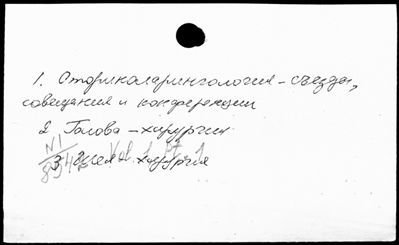 1. Оториноларингология – съезды,
совещания и конференции
2 Голова – хирургия
3 Шея – хирургия
N1
Vol. 1 Pt. 1